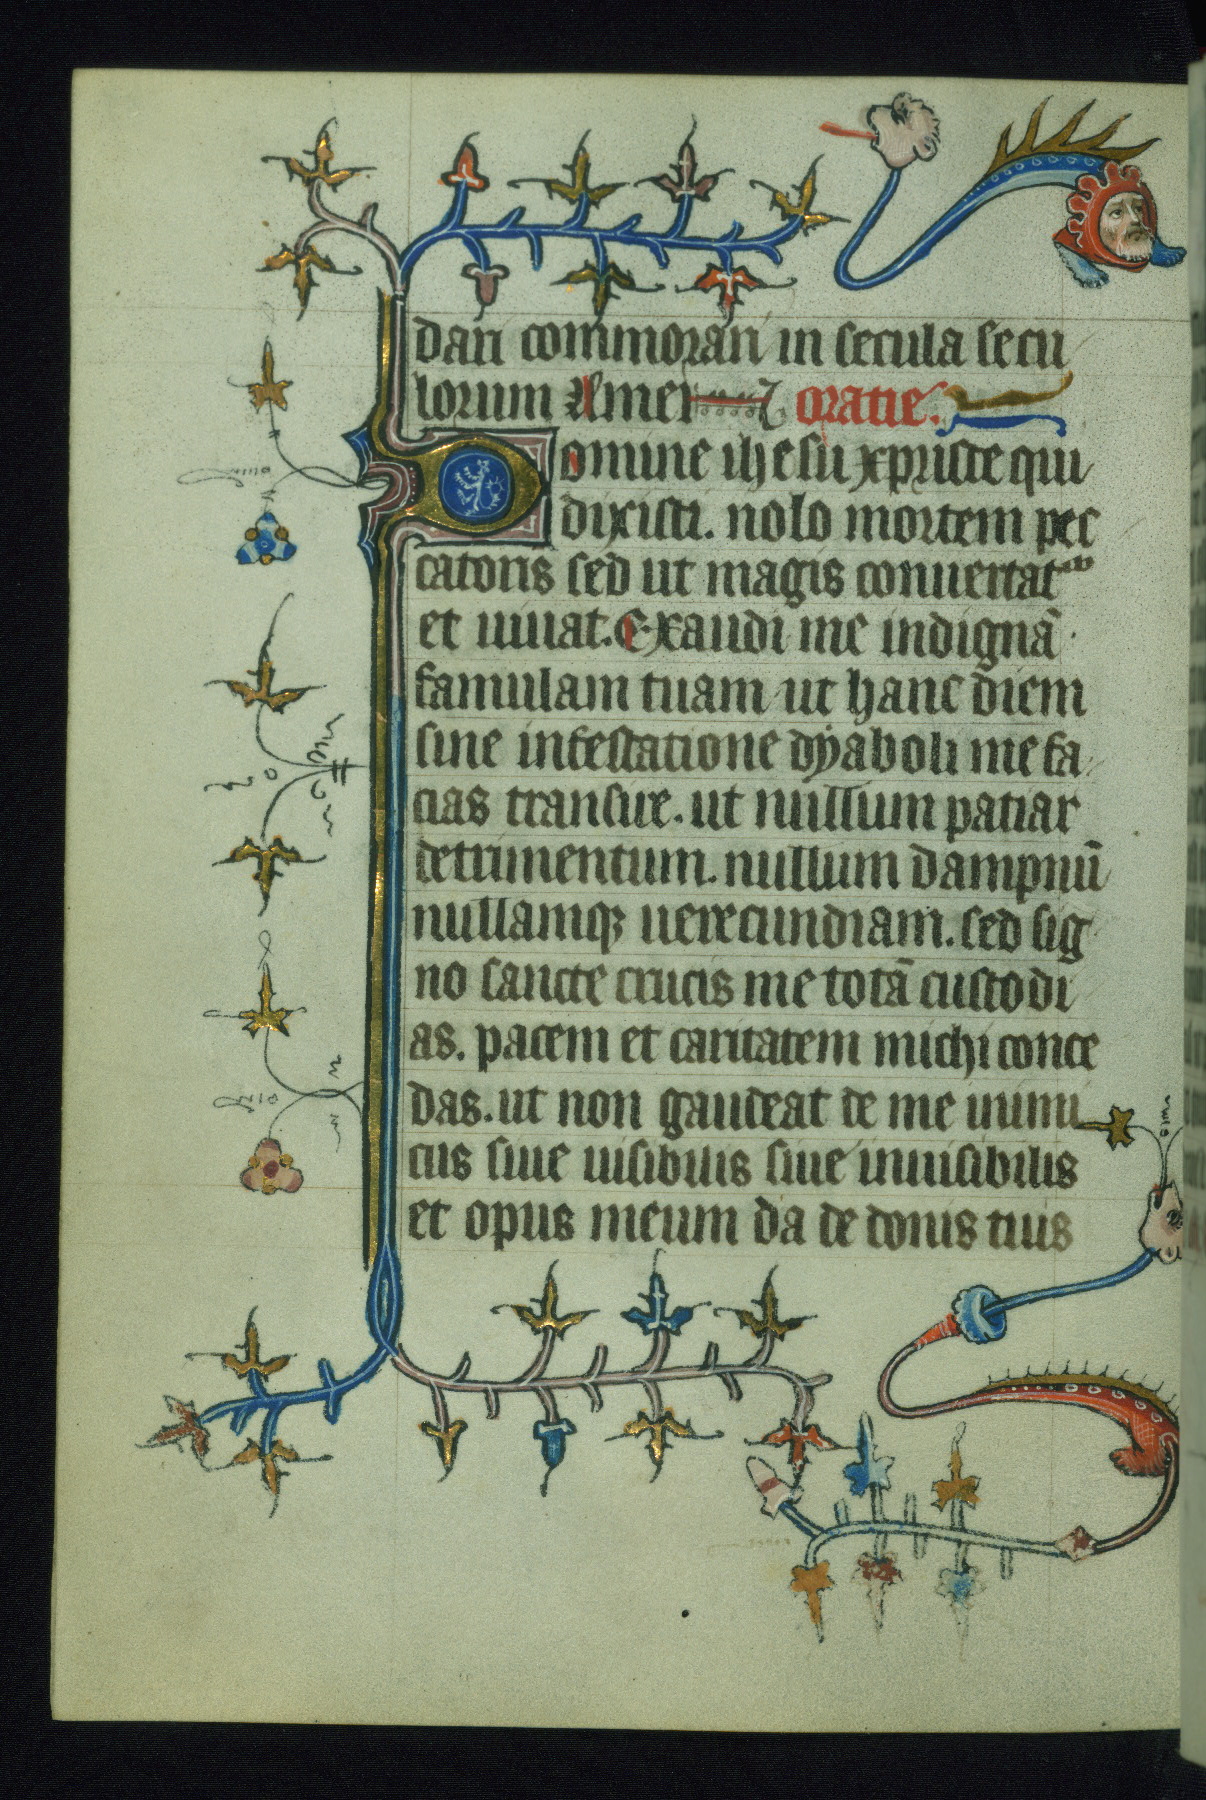 dari commorari in secula secu
lorum Amen oratie.
Domine ihesu xpriste qui
dixisti. nolo mortem pec
catoris sed ut magis conuertat᷑
et uiuat. Exaudi me indignā
famulam tuam ut hanc diem
sine infestatione dyaboli me fa
cias transire. ut nullum patiar
detrimentum. nullum dampnū
nullamqꝫ uerecundiam. sed sig
no sancte crucis me totā custodi
as. pacem et caritatem michi conce
das. ut non gaudeat de me inimi
cus siue uisibilis siue inuisibilis
et opus meum da de donis tuis